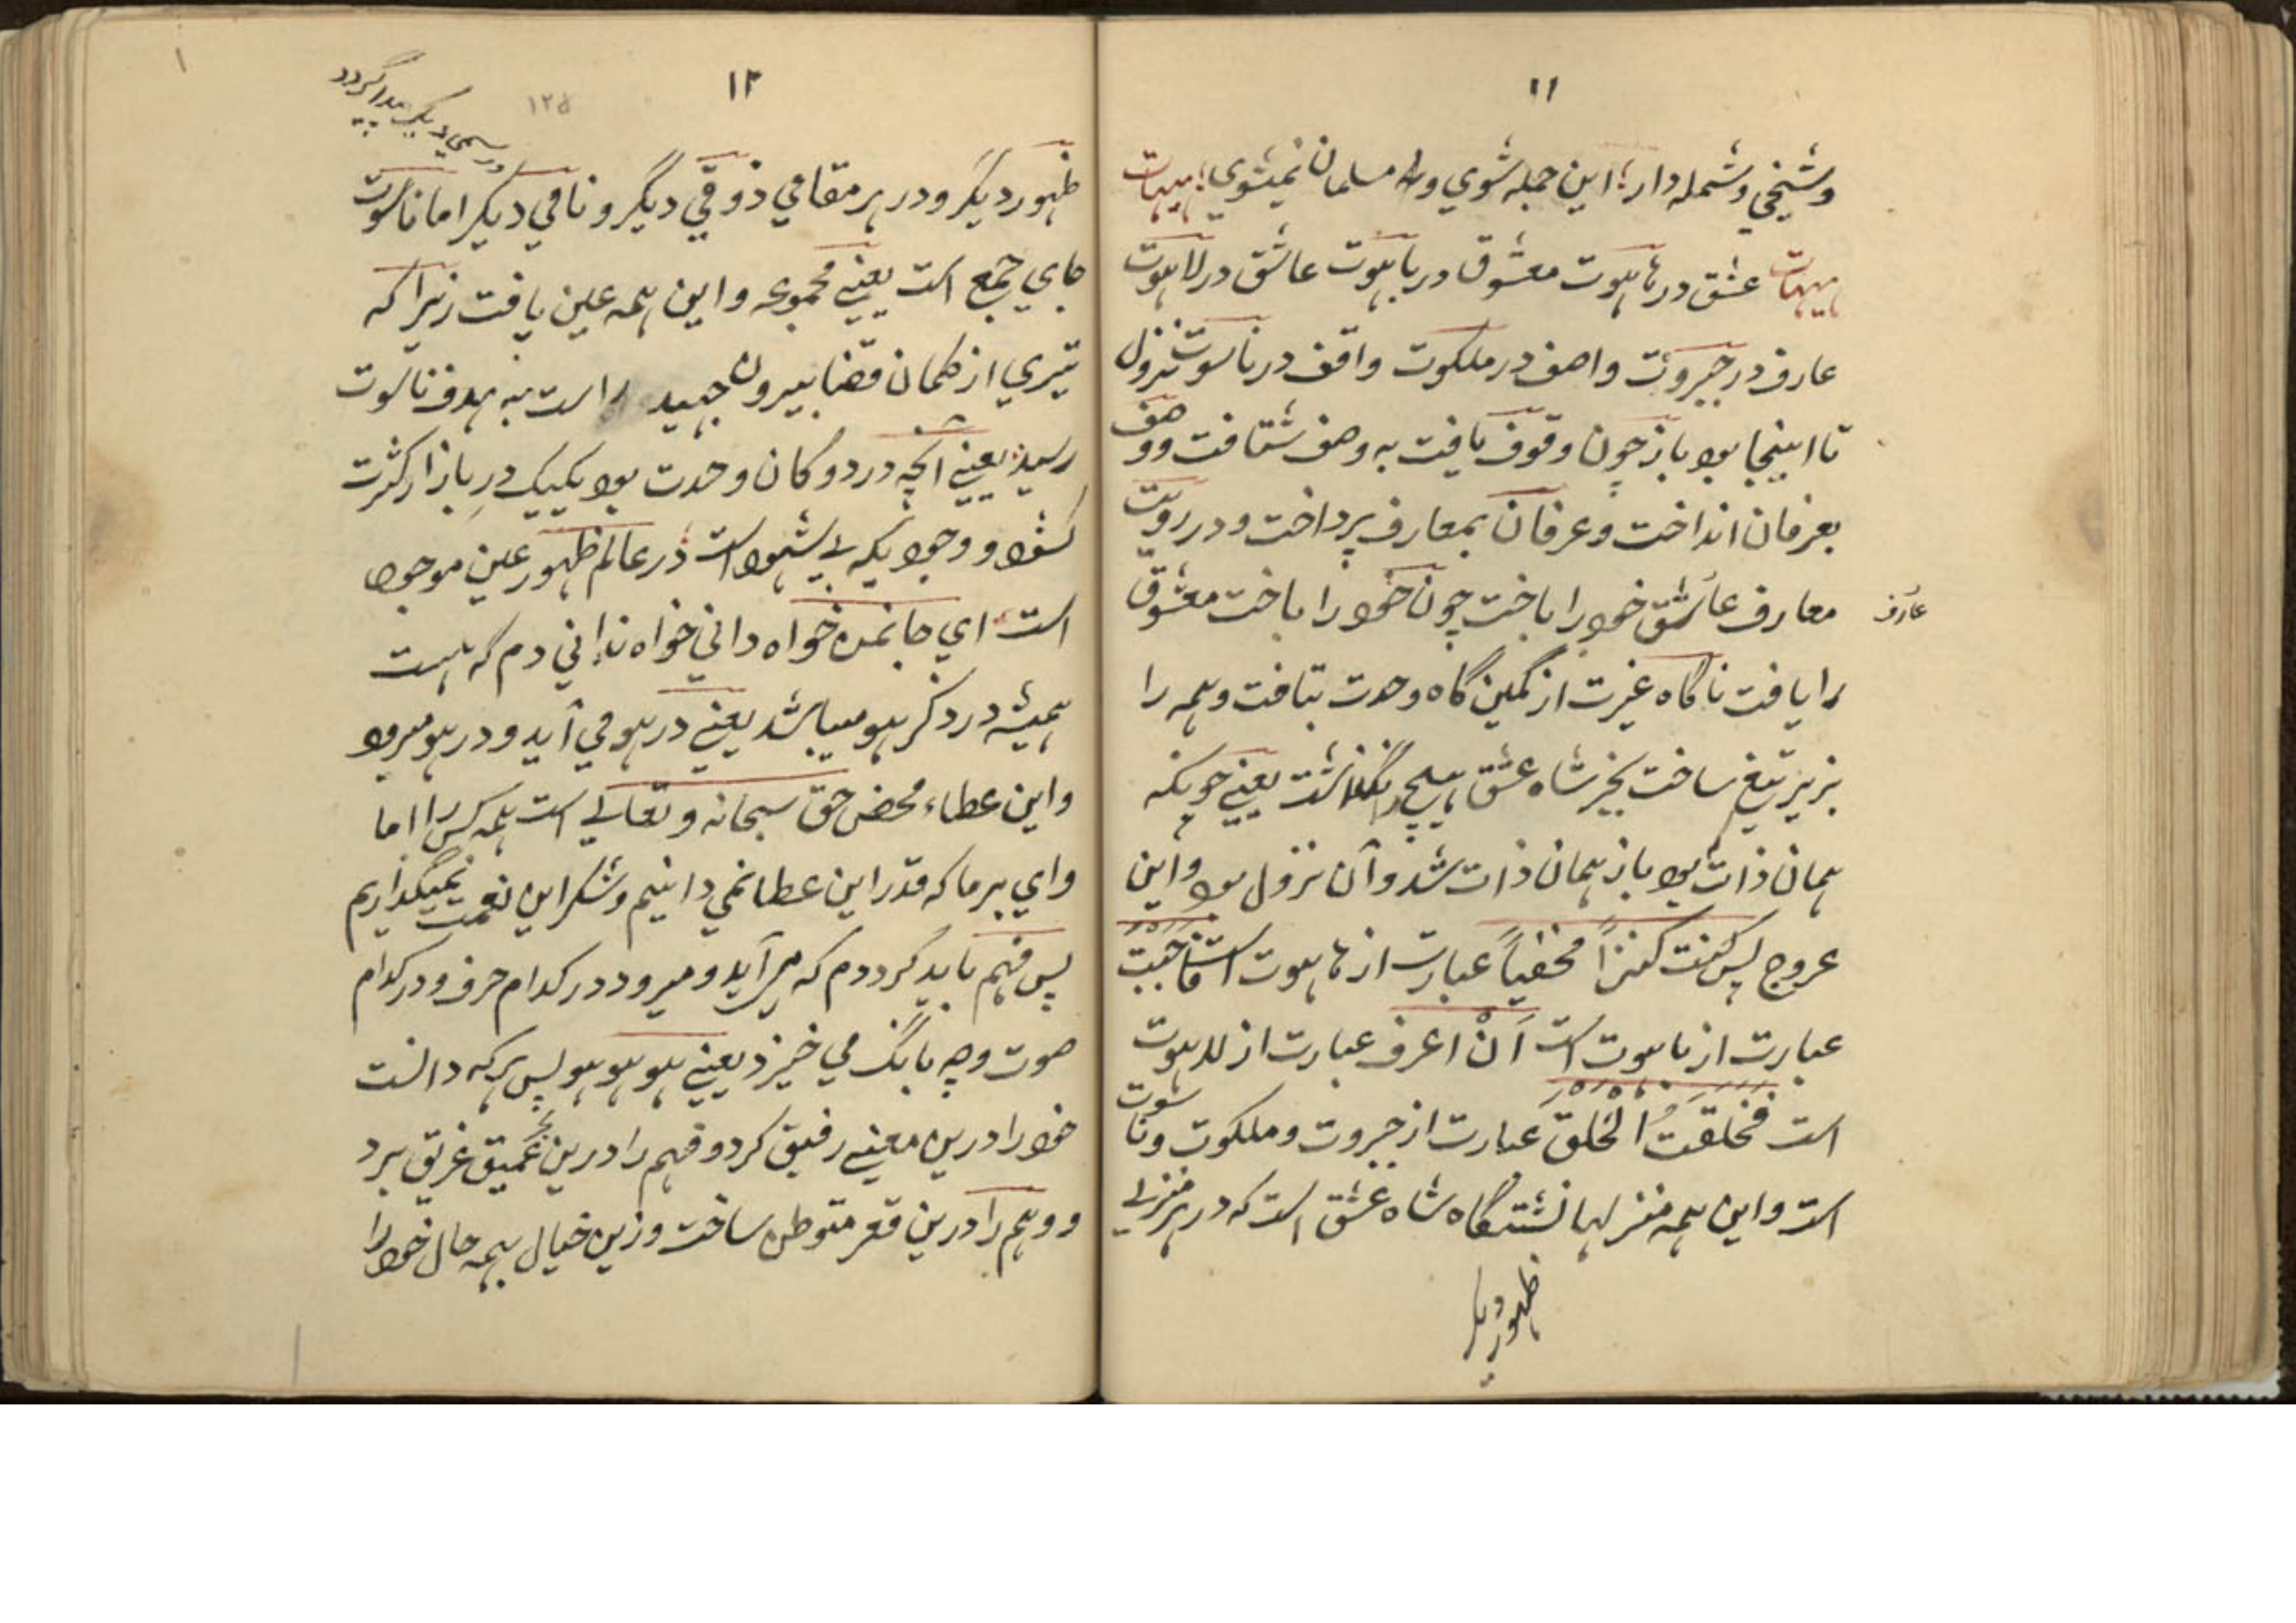 ١١
وشيخي وشمله دار؛ اين جمله شوي و مسلمان نميشوي؛ هيهات
هيهات عشق در هاهوت معشوق در باهوت عاشق در لاهوت
عارف در جبروت واصف در ملكوت واقف در ناسوت نزول
تا اينجا بود باز چون وقوف يافت به وصف شتافت ووصف
بعرفان انداخت وعرفان بمعارف پرداخت ودر رويت
معارف عاشق خود را باخت چون خود را باخت معشوق
عارف
را يافت ناگاه غيرت از كمين گاه وحدت بتافت وهمه را
بزير تيغ ساخت بجز شاه عشق هيچ نگذاشت يعني چونكه
همان ذات بود باز همان ذات شد وآن نزول بود واين
عروج پس كنت كنزاً مخفياً عبارت از هاهوت است فاحببت
عبارت از باهوت است اَنْ اعرف عبارت از لاهوت
است فَخلقتُ الْخلقَ عبارت از جبروت وملكوت وناسوت
است واين همه منزلها نشتگاه شاه عشق است كه در هر منزلے
ظهور ديگر
١٢
١٢٥
ظهور ديگر ودر هر مقامي ذوقي ديگر ونامي ديگر اما ناسوت
ور سمي ديگر پيدا گردد
جاي جمع است يعنے مجموعه واين همه عين يافت زيرا كه
تيري از كمان قضا بيرون جهيد راست به هدف ناسوت
رسيد يعنے آنچه در دوكان وحدت بود يكيك در بازار كثرت
كشود ووجوديكه بے شهود است در عالم ظهور عين موجود
است اي جانمن خواه داني خواه نداني دم كه هست
هميشه در ذكر هو ميباشد يعنے در هو مي آيد ودر هو ميرود
واين عطاء محض حق سبحانه وتعالے است همه كس را اما
واي بر ما كه قدر اين عطا نمي دانيم وشكر اين نعمت نميگذاريم
پس فهم بايد كرد دم كه مي آيد وميرود در كدام حرف ودر كدام
صوت وچه بانگ مي خيزد يعنے هو هو هو پس هر كه دانست
خود را درين معنے رفيق كرد وفهم را درين بحر عميق غريق برد
ووهم را درين قعر متوطن ساخت وزين خيال بهمه حال خود را